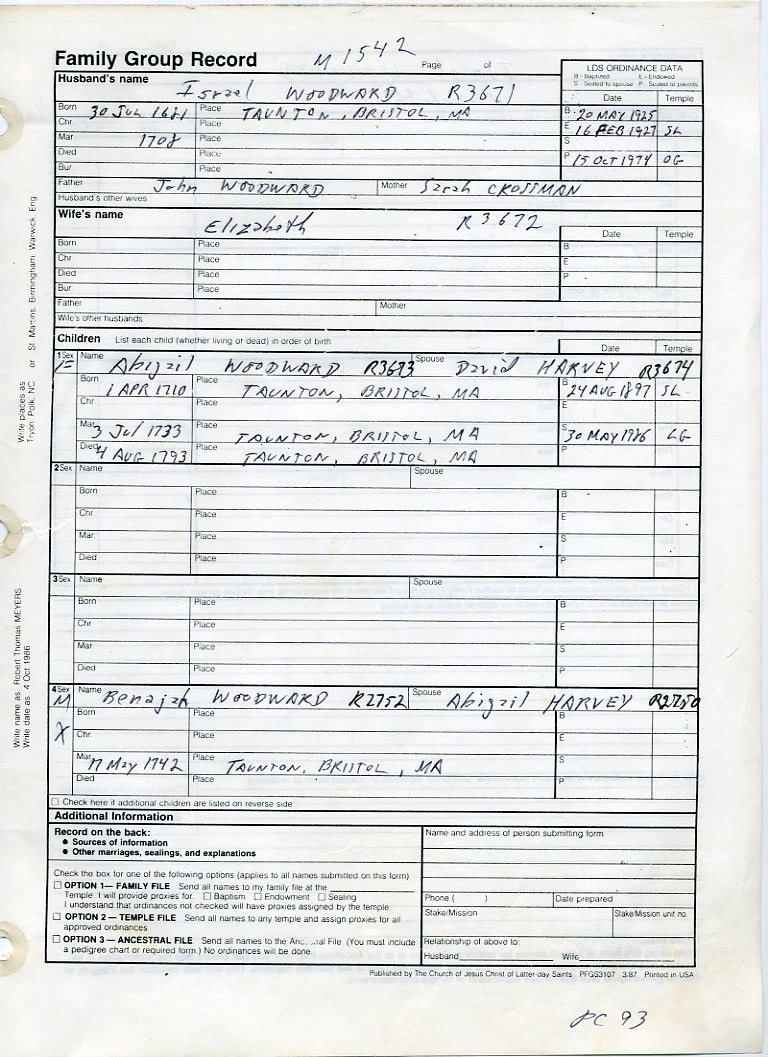 Family Group Record M1542 Page of
Husband's name
Iszael WOODWARD R3671
LDS ORDINANCE DATA
B - Baptized E - Endowed
S - Sealed to spouse P - Sealed to parents
Date Temple
Born 30 Jul 1681 Place TAUNTON, BRISTOL, MA B 20 MAY 1925
Chr. Place E 16 FEB 1927 SL
Mar. 1708 Place S
Died Place P 15 OCT 1974 OG
Bur. Place
Father John WOODWARD Mother Sarah CROSSMAN
Husband's other wives
Wife's name
Elizabeth R3672
Date Temple
Born Place B
Chr. Place E
Died Place P
Bur. Place
Father Mother
Wife's other husbands
Children List each child (whether living or dead) in order of birth Date Temple
1 Sex F Name Abigail WOODWARD R3673 Spouse David HARVEY R3674
Born 1 APR 1710 Place TAUNTON, BRISTOL, MA B 24 AUG 1897 SL
Chr. Place E
Mar. 3 Jul 1733 Place TAUNTON, BRISTOL, MA S 30 MAY 1986 LG
Died 4 AUG 1793 Place TAUNTON, BRISTOL, MA P
2 Sex Name Spouse
Born Place B
Chr. Place E
Mar. Place S
Died Place P
3 Sex Name Spouse
Born Place B
Chr. Place E
Mar. Place S
Died Place P
4 Sex M Name Benajah WOODWARD R2752 Spouse Abigail HARVEY R2750
Born Place B
X Chr. Place E
Mar. 17 May 1742 Place TAUNTON, BRISTOL, MA S
Died Place P
Check here if additional children are listed on reverse side
Additional Information
Record on the back:
• Sources of information
• Other marriages, sealings, and explanations
Check the box for one of the following options (applies to all names submitted on this form)
OPTION 1— FAMILY FILE Send all names to my family file at the
Temple. I will provide proxies for: Baptism Endowment Sealing
I understand that ordinances not checked will have proxies assigned by the temple
OPTION 2 — TEMPLE FILE Send all names to any temple and assign proxies for all
approved ordinances
OPTION 3 — ANCESTRAL FILE Send all names to the File. (You must include
a pedigree chart or required form.) No ordinances will be done.
Name and address of person submitting form
Phone ( ) Date prepared
Stake/Mission Stake/Mission unit no.
Relationship of above to:
Husband Wife
Published by The Church of Jesus Christ of Latter-day Saints PFGS3107 3/87 Printed in USA
PC 93
Write places as: Tryon, Polk, NC or St. Martins, Birmingham, Warwick, Eng
Write name as: Robert Thomas MEYERS
Write date as: 4 Oct 1986